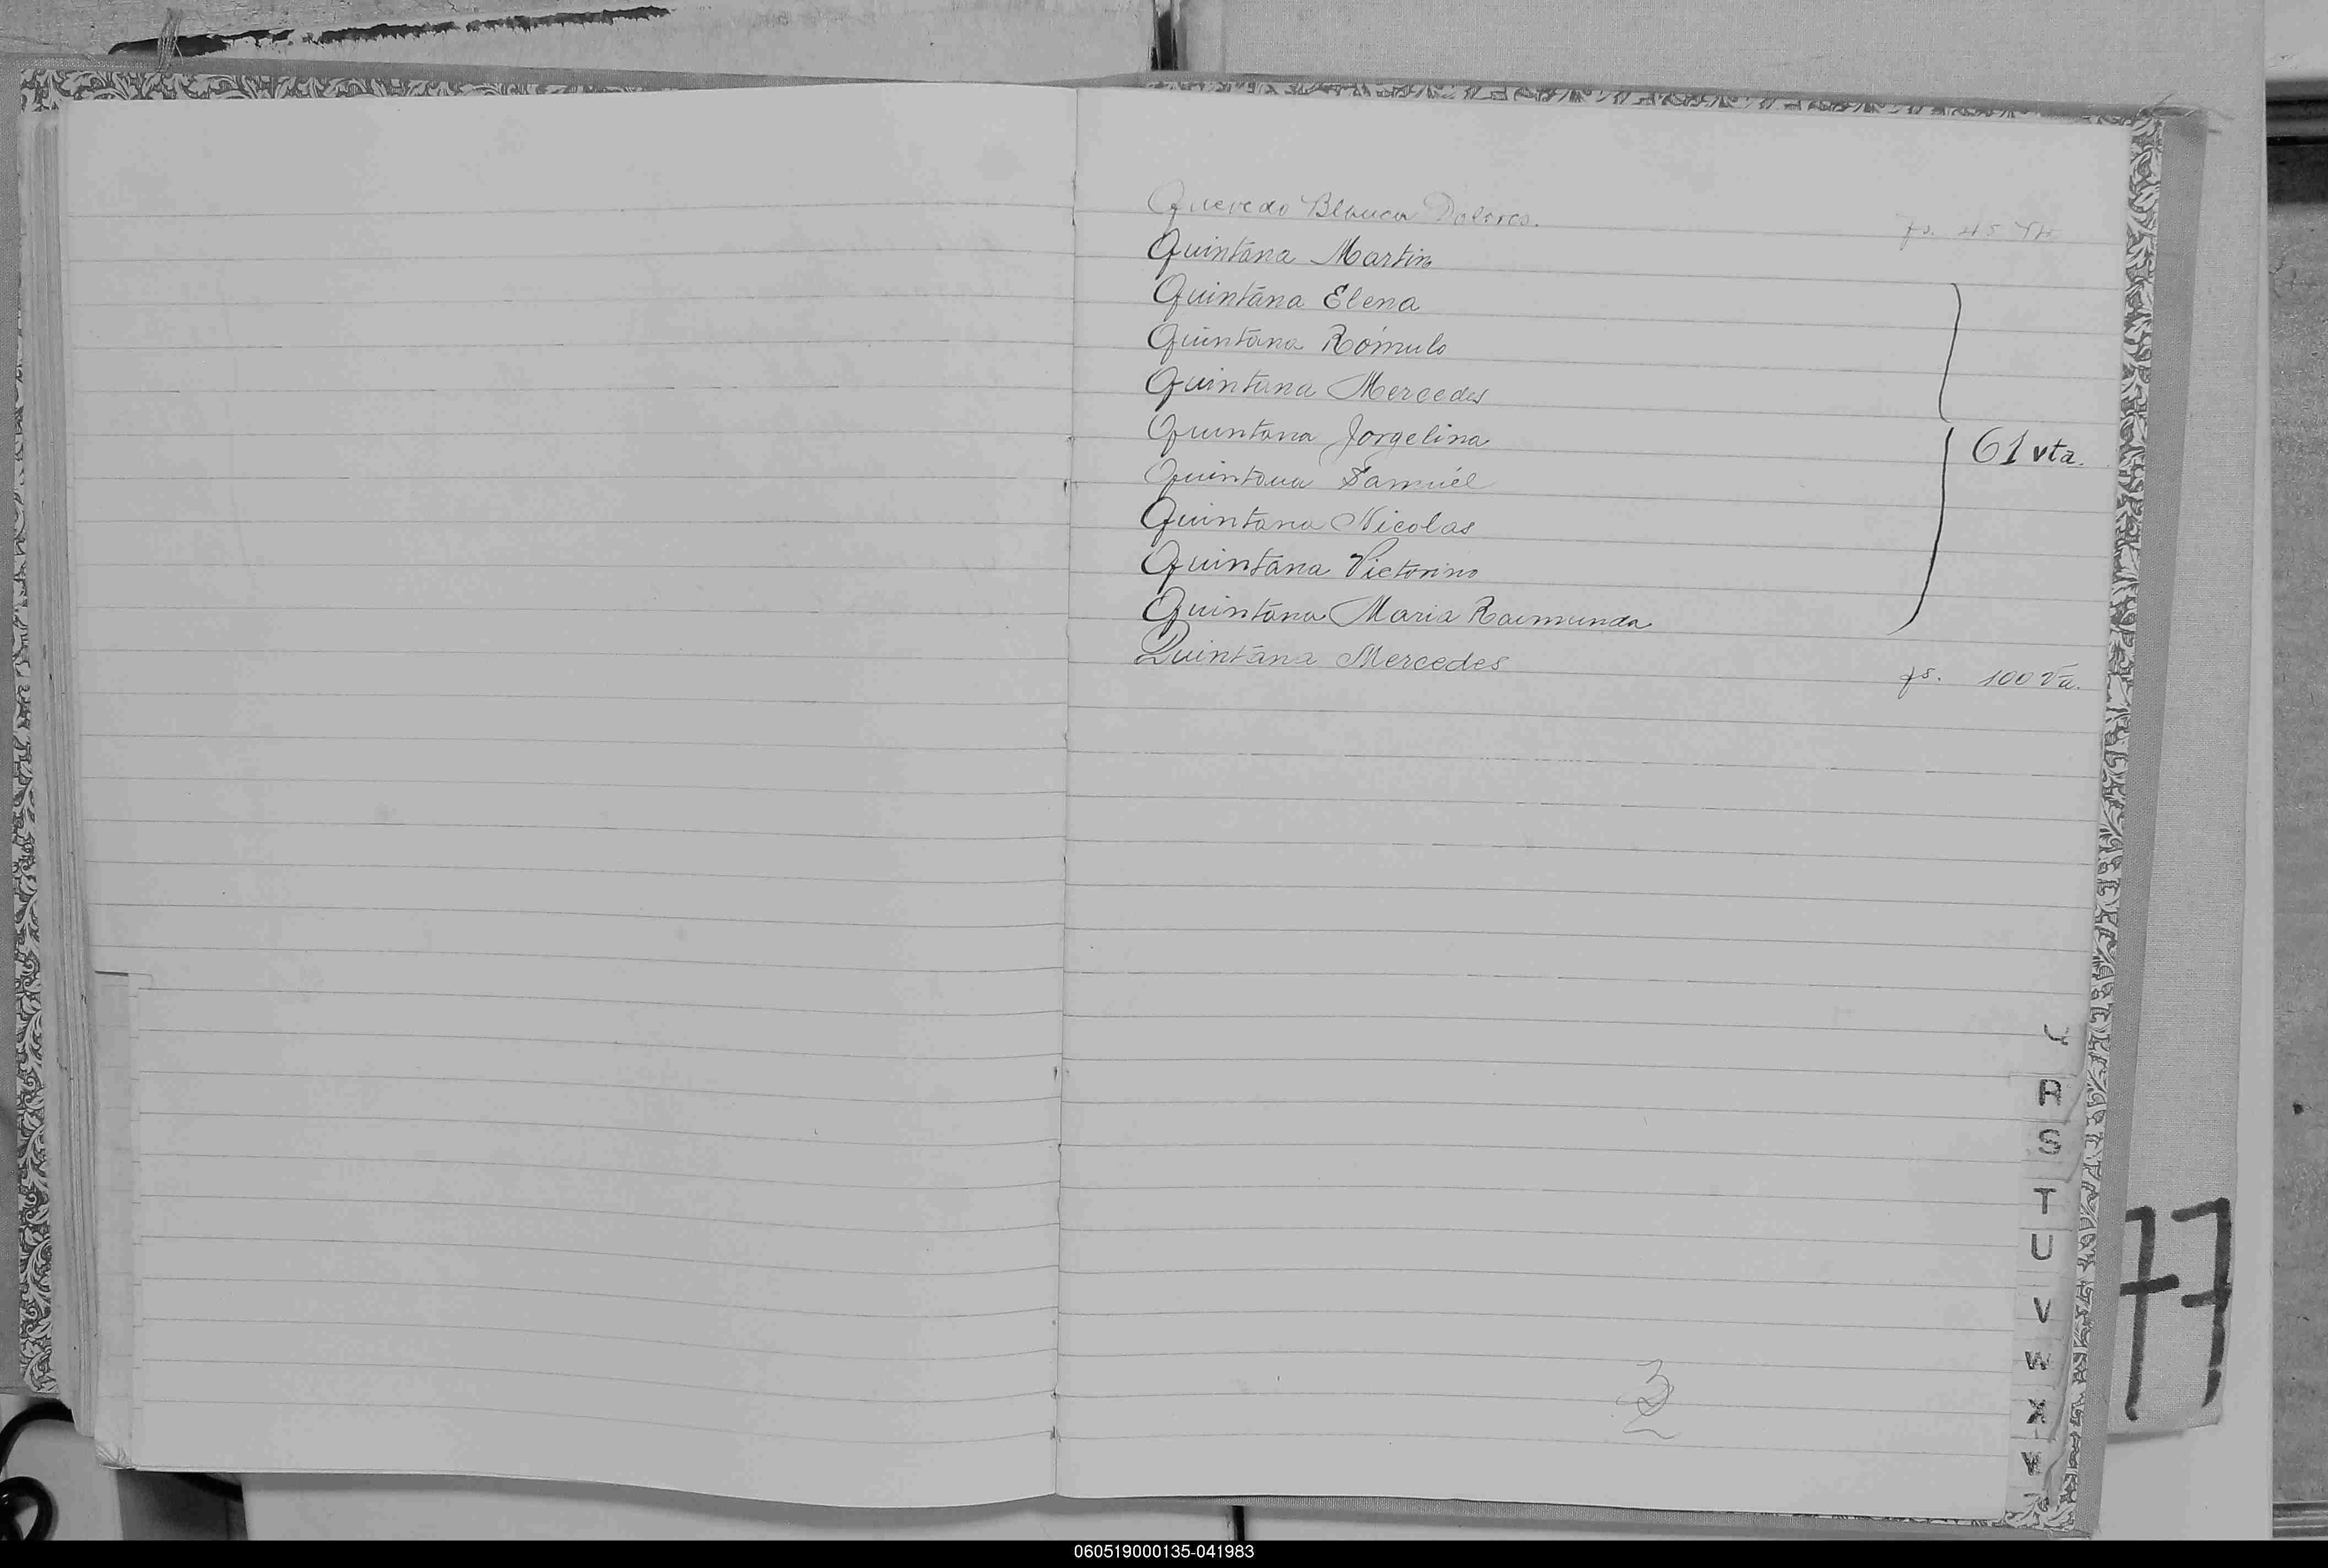 Quevedo Blanca Dolores. fs. 45 Vta
Quintana Martin
Quintana Elena
Quintana Rómulo
Quintana Mercedes
Quintana Jorgelina
61 vta.
Quintana Samuel
Quintana Nicolas
Quintana Victorino
Quintana Maria Raimunda
Quintana Mercedes fs. 100 Va.
R
S
T
U
V
W
X
Y
77
060519000135-041983